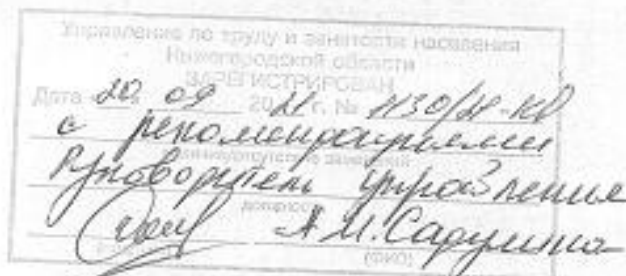 Управление по труду и занятости населения
Нижегородской области
ЗАРЕГИСТРИРОВАН
Дата 20 09 2021 г. №
с рекомендациями
Руководитель управления
должность
А.М.Сарулина
(ФИО)